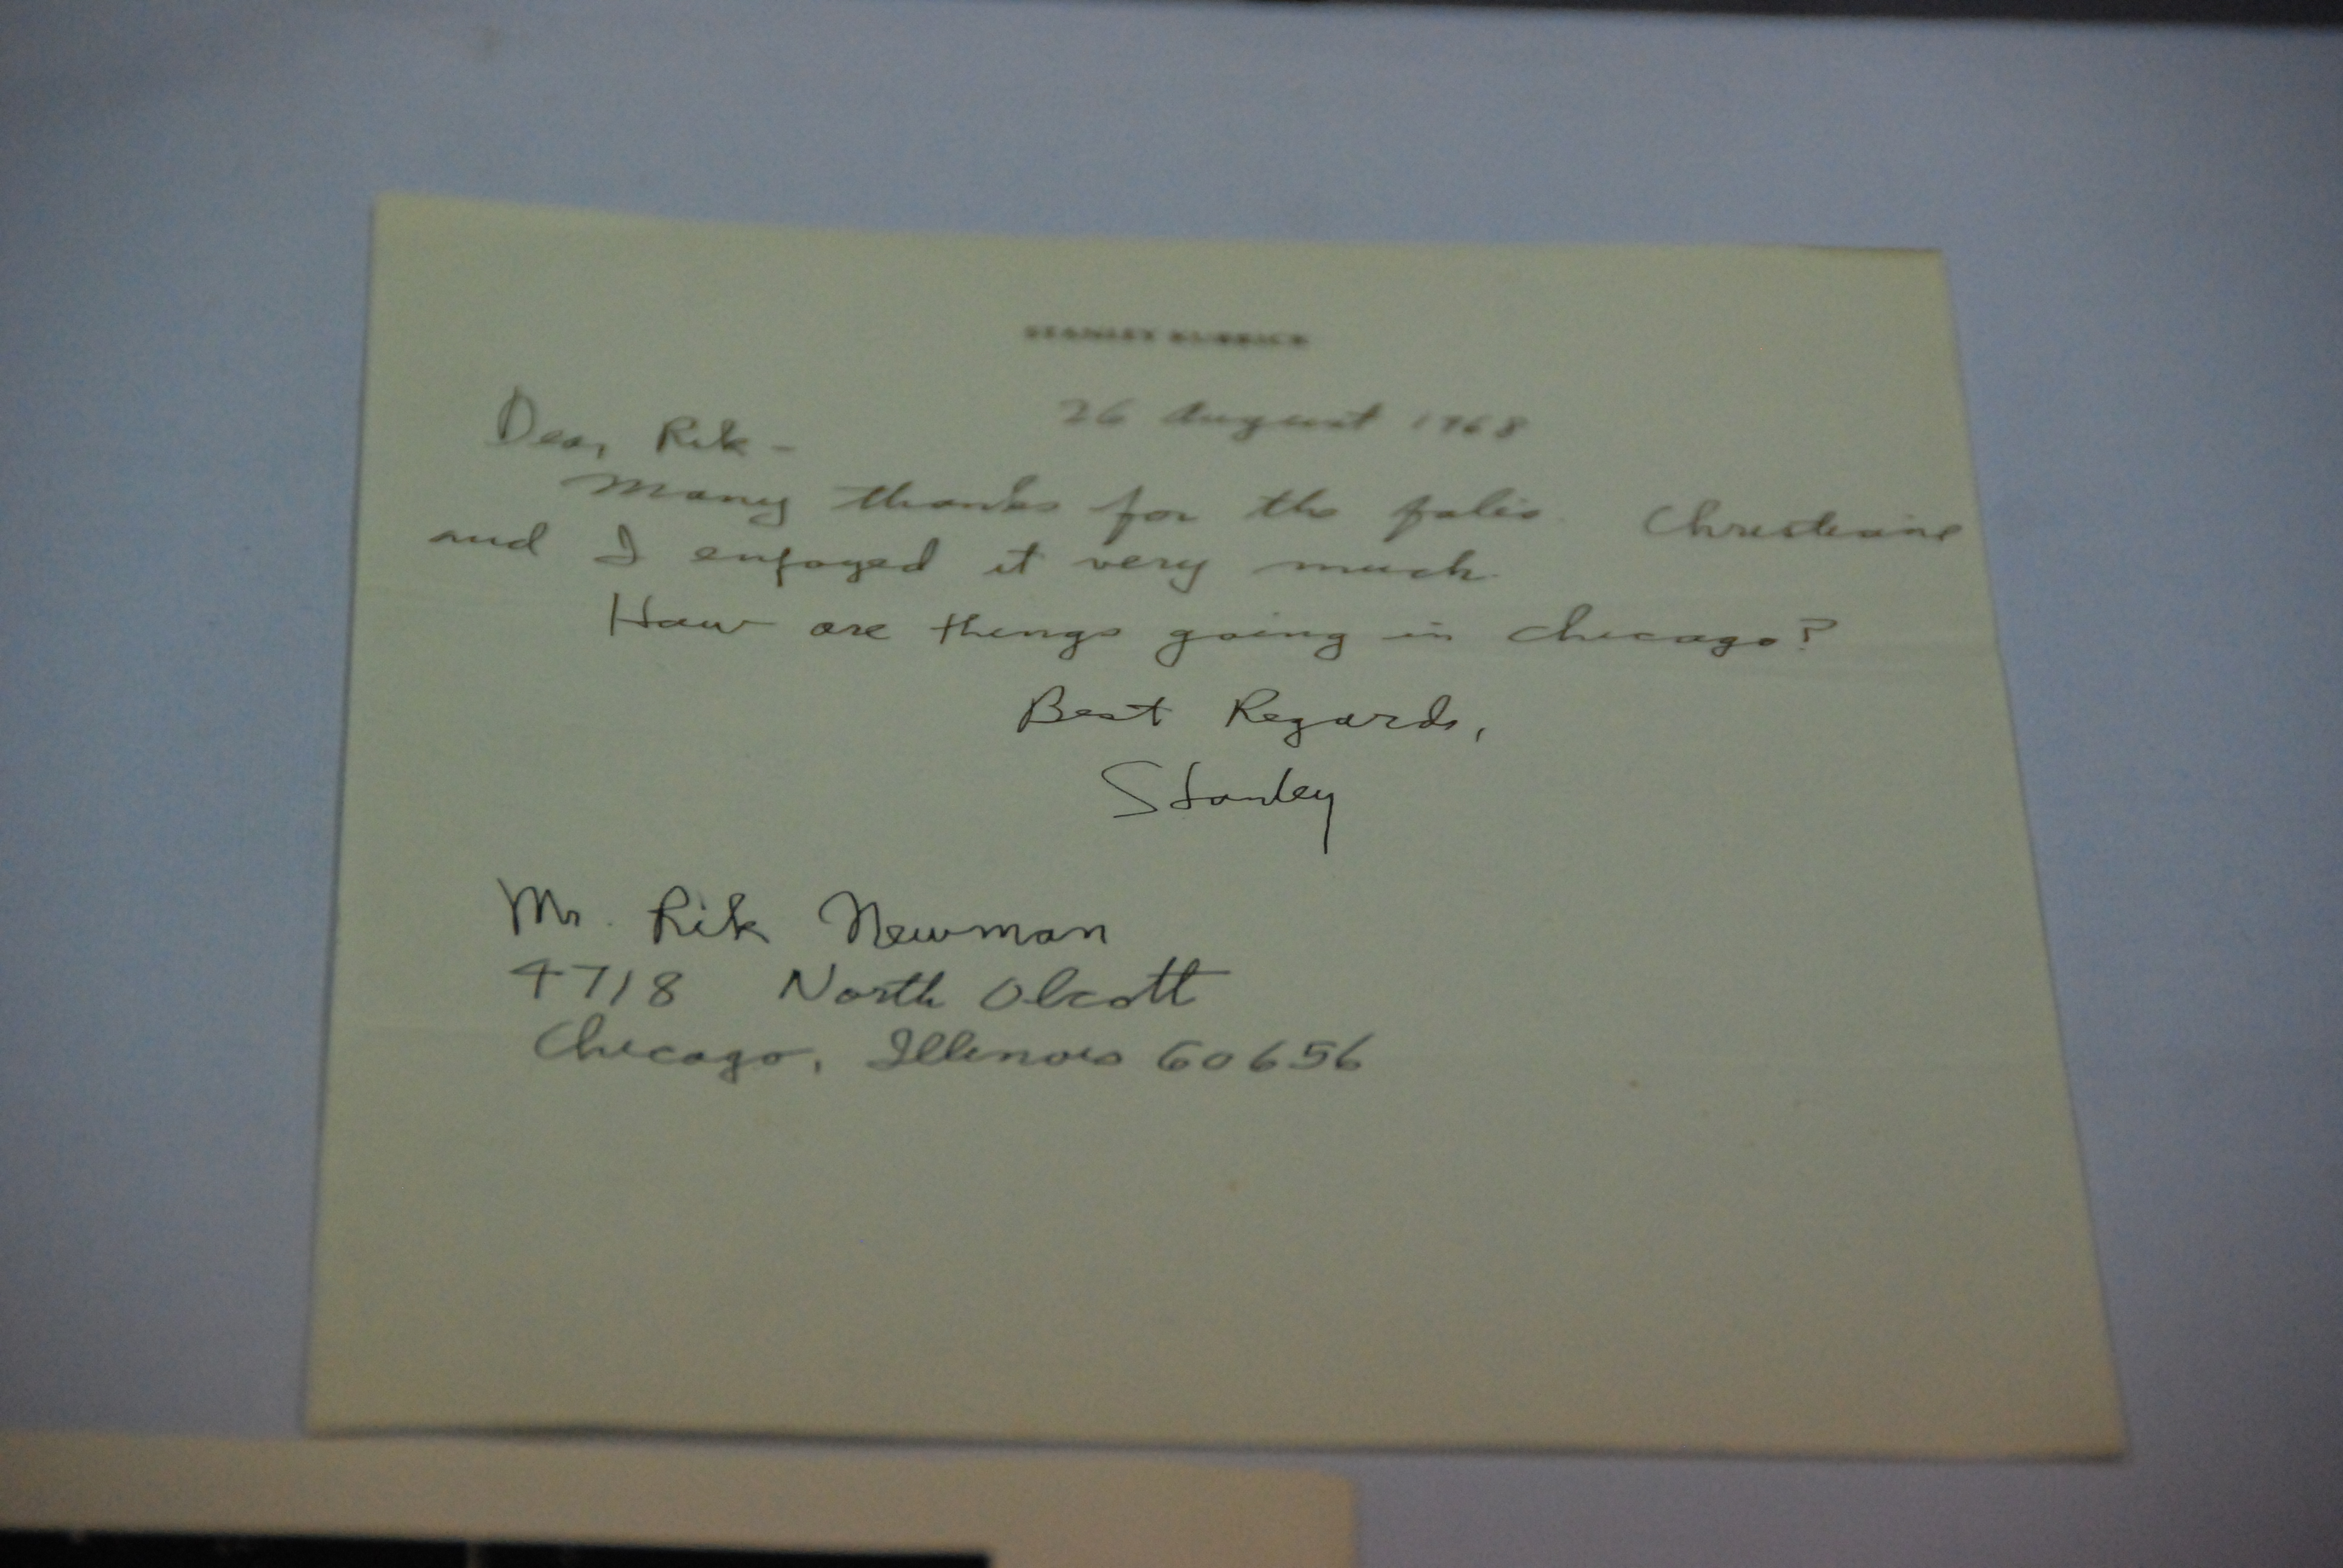 STANLEY KUBRICK
26 August 1968
Dear Rik -
Many thanks for the folio. Christiane
and I enjoyed it very much.
How are things going in Chicago?
Best Regards,
Stanley
Mr. Rik Newman
4718 North Olcott
Chicago, Illinois 60656